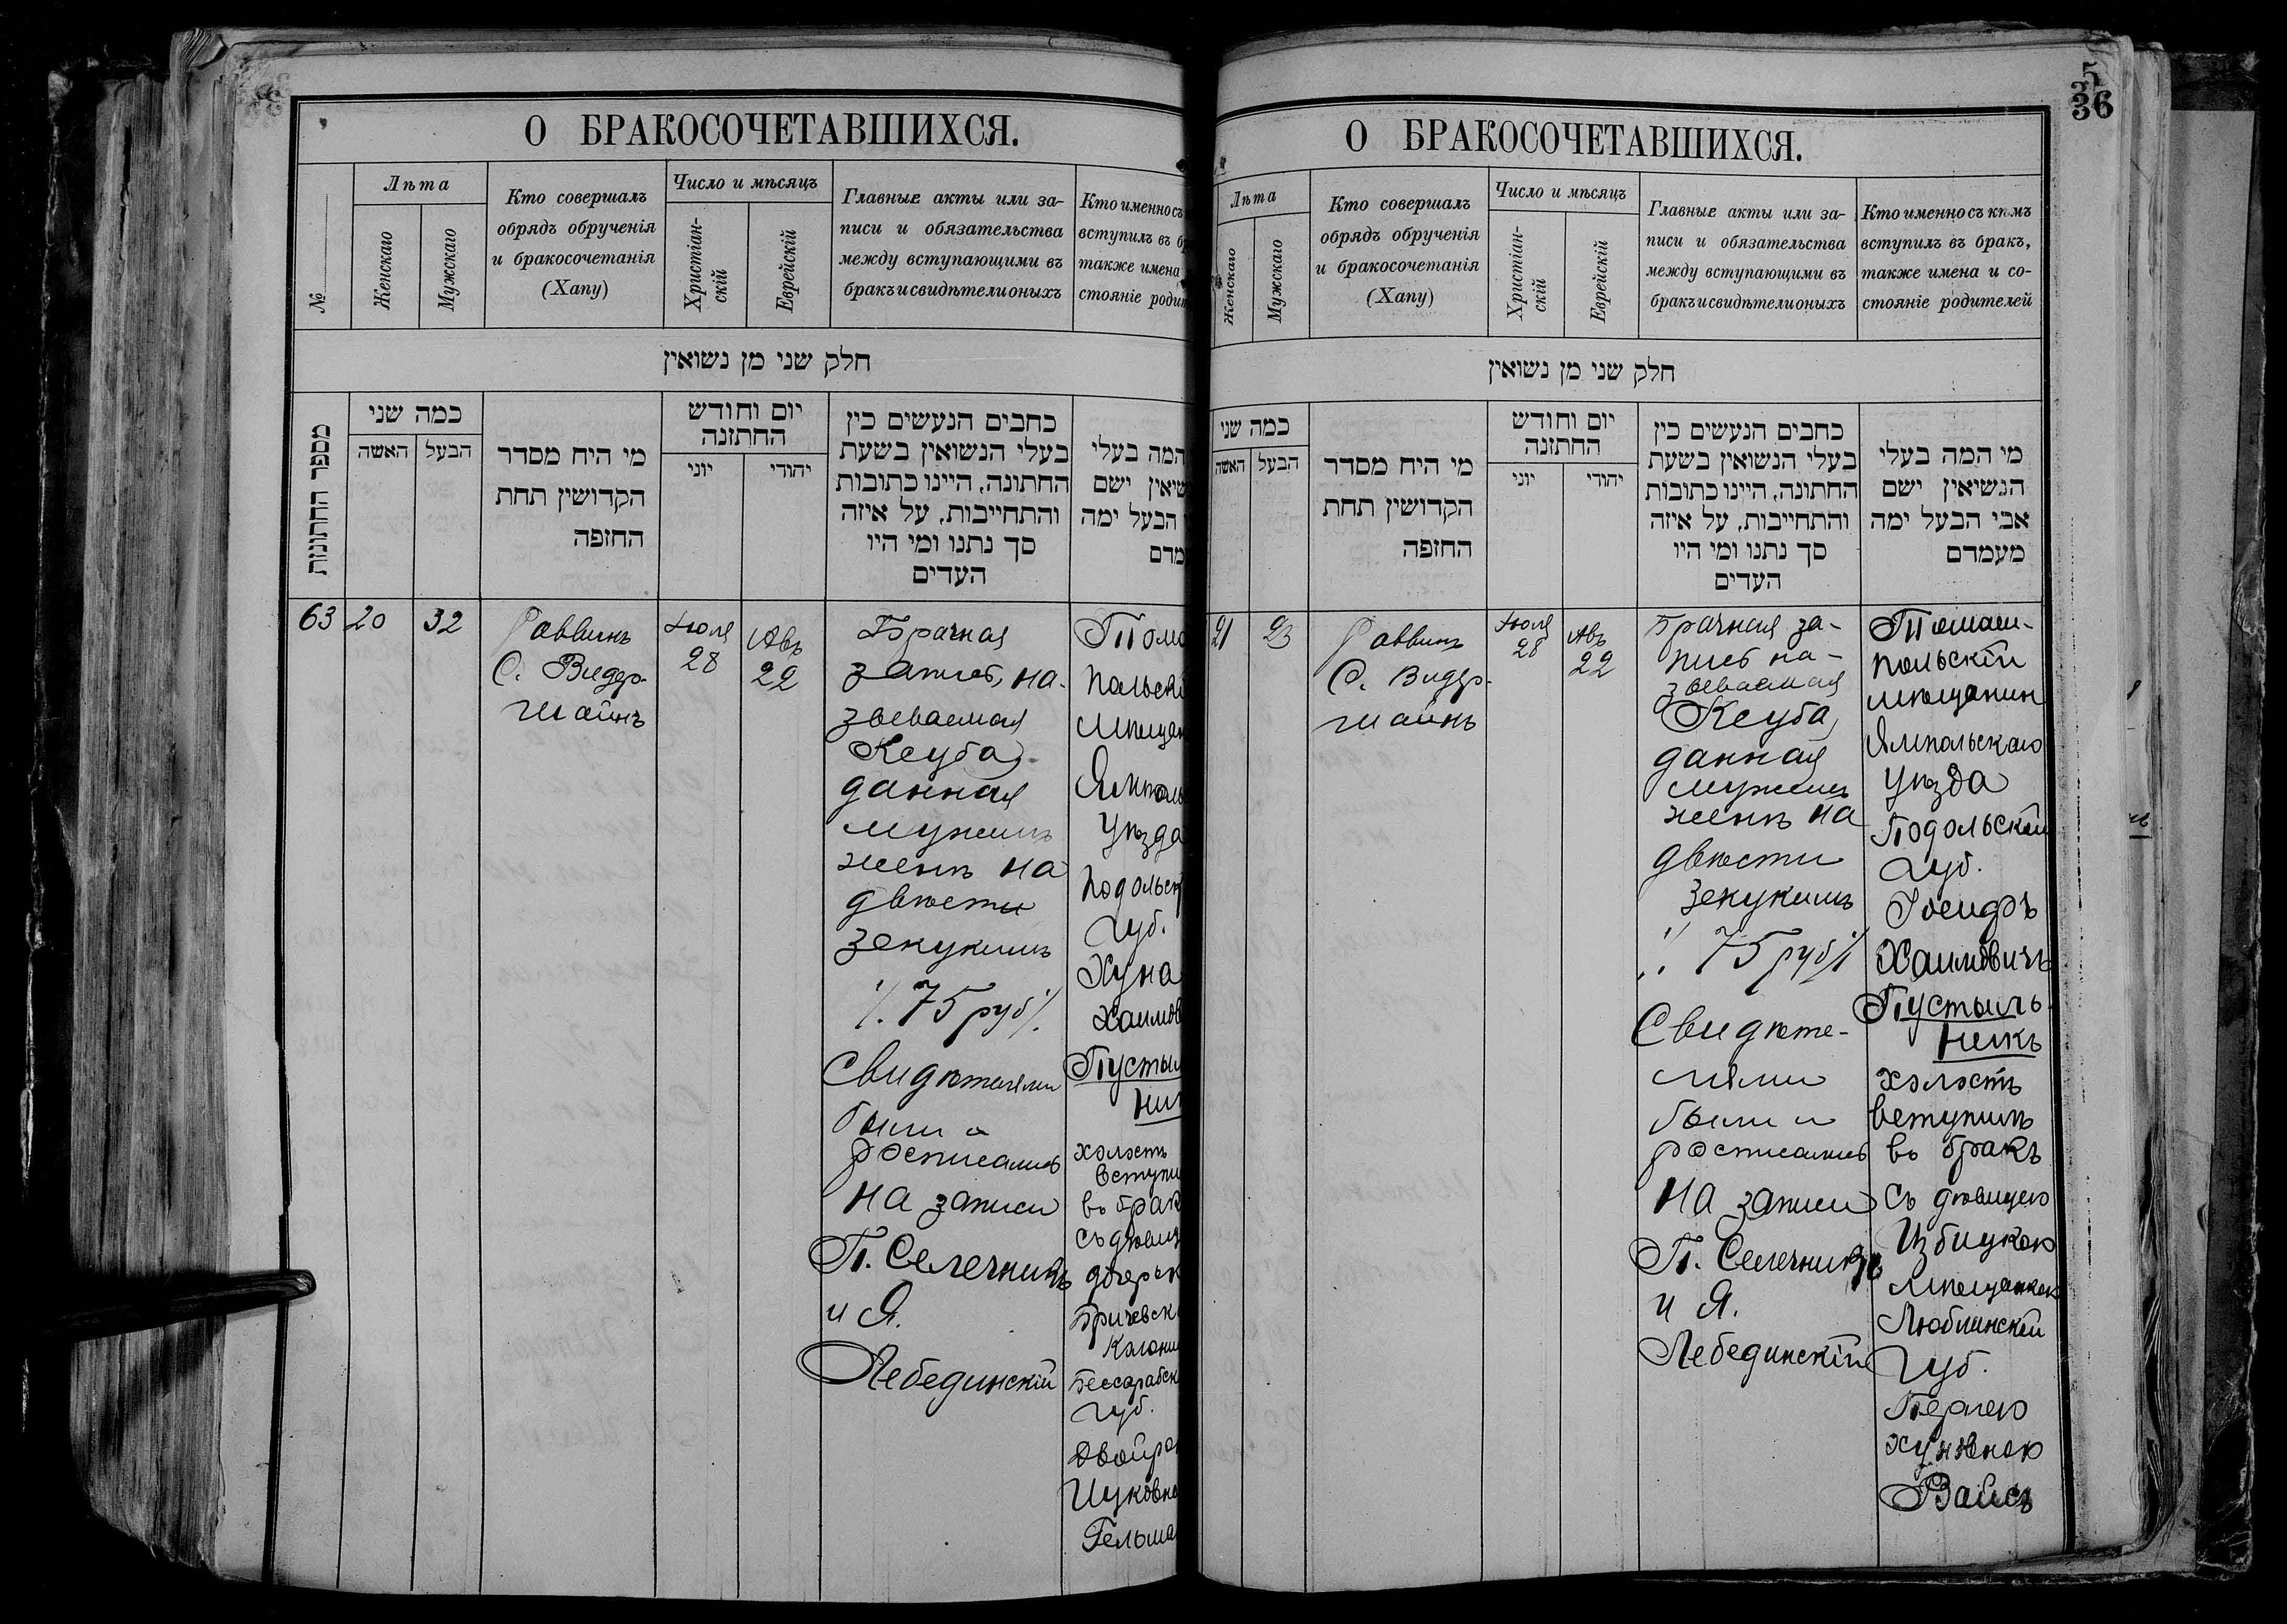 5
36
О БРАКОСОЧЕТАВШИХСЯ.
№
Лѣта
Женскаго
Мужскаго
Кто совершалъ
обрядъ обрученія
и бракосочетанія
(Хапу)
Число и мѣсяцъ
Христіан-
скій
Еврейскій
Главные акты или за-
писи и обязательства
между вступающими въ
бракъ и свидѣтели оныхъ
Кто именно съ
вступилъ въ б
также имена
стояніе родит
חלק שני מן נשואין
מספר החתונות
כמה שני
האשה
הבעל
מי היח מסדר
הקדושין תחת
החופה
יום וחודש
החתונה
יוני
יהודי
כחבים הנעשים כין
בעלי הנשואין בשעת
החתונה, היינו כתובות
והתחייבות, על איזה
סך נתנו ומי היו
העדים
המה בעלי
שיאין ישם
הבעל ימה
מדם
63
20
32
Раввинъ
С. Видер-
шайнъ
Іюля
28
Авъ
22
Брачная
запись, на-
зываемая
Ксуба,
данная
мужемъ
женѣ на
двѣсти
зекукимъ
٪ 75 руб ٪
Свидѣтелями
были и
росписались
на записи
П. Селечникъ
и Я.
Лебединскій
Тома
польскі
мѣщан
Ямполь
уѣзда
Подольск
губ.
Хуна
Хаимов
Пустыл
ник
холостъ
вступи
въ брак
съ дѣвиц
дочерью
Бричевск
колони
Бессарабск
губ.
Двойро
Ицковно
Гельма
О БРАКОСОЧЕТАВШИХСЯ.
Лѣта
Женскаго
Мужскаго
Кто совершалъ
обрядъ обрученія
и бракосочетанія
(Хапу)
Число и мѣсяцъ
Христіан-
скій
Еврейскій
Главные акты или за-
писи и обязательства
между вступающими въ
бракъ и свидѣтели оныхъ
Кто именно съ кѣмъ
вступилъ въ бракъ,
также имена и со-
стояніе родителей
חלק שני מן נשואין
כמה שני
האשה
הבעל
מי היח מסדר
הקדושין תחת
החופה
יום וחודש
החתונה
יוני
יהודי
כחבים הנעשים כין
בעלי הנשואין בשעת
החתונה, היינו כתובות
והתחייבות, על איזה
סך נתנו ומי היו
העדים
מי המה בעלי
הנשיאין ישם
אבי הבעל ימה
מעמדם
21
23
Раввинъ
С. Видер-
шайнъ
Іюля
28
Авъ
22
Брачная за-
пись на-
зываемая
Ксуба,
данная
мужемъ
женѣ на
двѣсти
зекукимъ
٪ 75 руб ٪
Свидѣте-
лями
были и
росписались
на записи
П. Селечникъ
и Я.
Лебединскій
Томаш-
польскій
мѣщанин
Ямпольскаго
уѣзда
Подольской
губ.
Іосифъ
Хаимовичъ
Пустыль-
никъ
холостъ
вступилъ
въ бракъ
съ дѣвицею
Избицкою
мѣщанкою
Люблинской
губ.
Перлею
Хуновною
Вайсъ